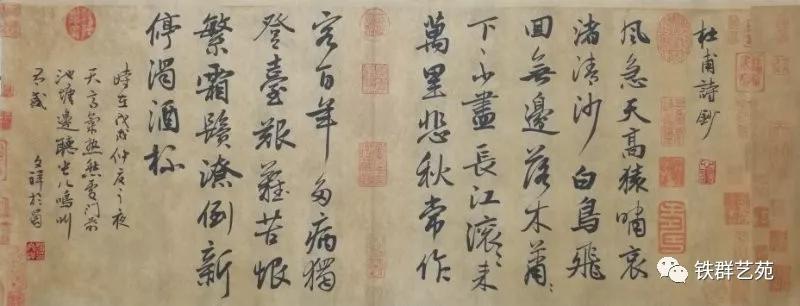 杜甫詩鈔
風急天高猿嘯哀
渚清沙白鳥飛
回無邊落木蕭〻
下不盡長江滾〻来
萬里悲秋常作
客百年多病獨
登臺艱難苦恨
繁霜鬢潦倒新
停濁酒杯
時在戊戌仲夏之夜
天高氣熱門前
池塘邊聽虫儿鳴叫
有感
文祥於蜀
铁群艺苑